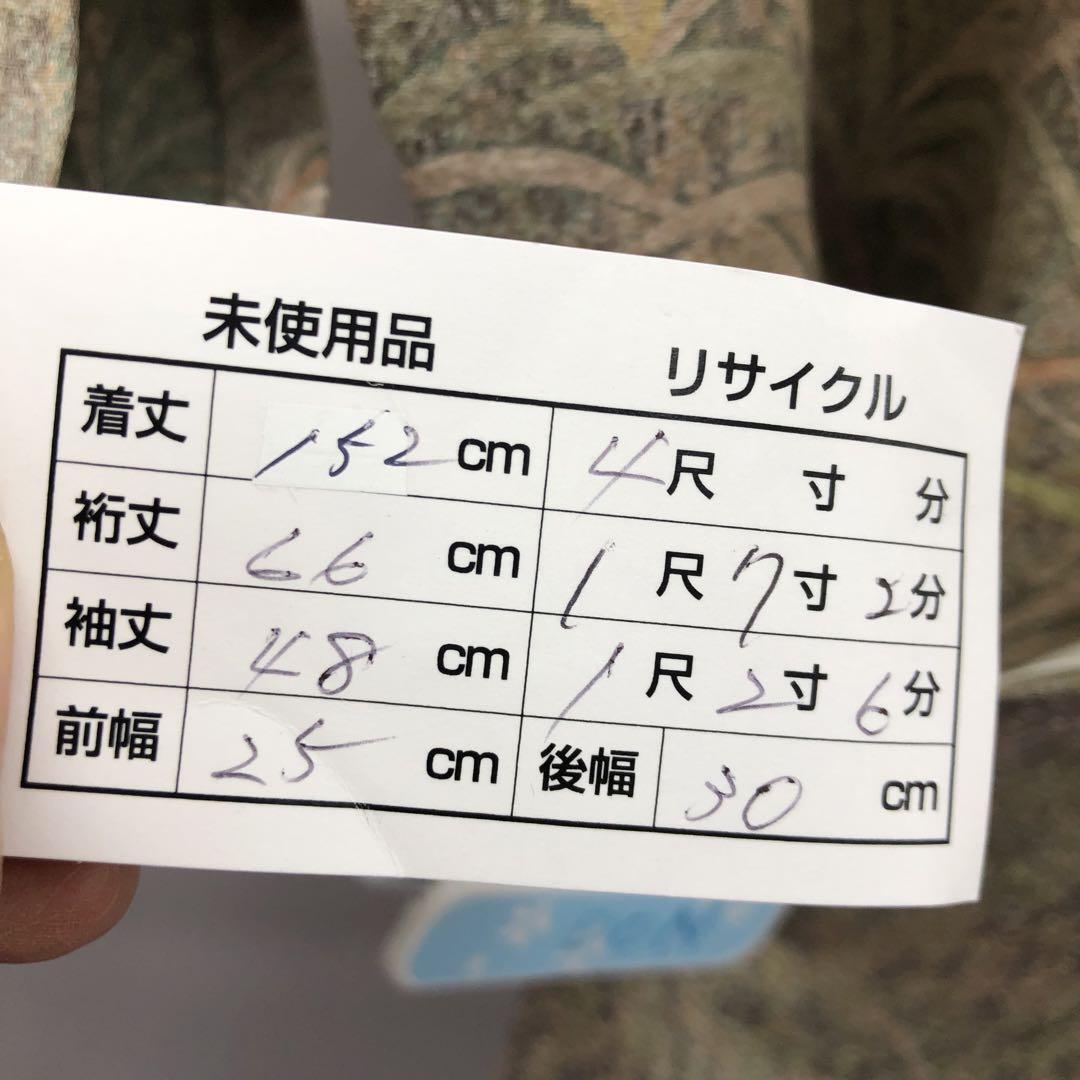 未使用品 リサイクル
着丈 152 cm 4尺 寸 分
裄丈 66 cm 1尺7寸2分
袖丈 48 cm 1尺2寸6分
前幅 25 cm 後幅 30 cm